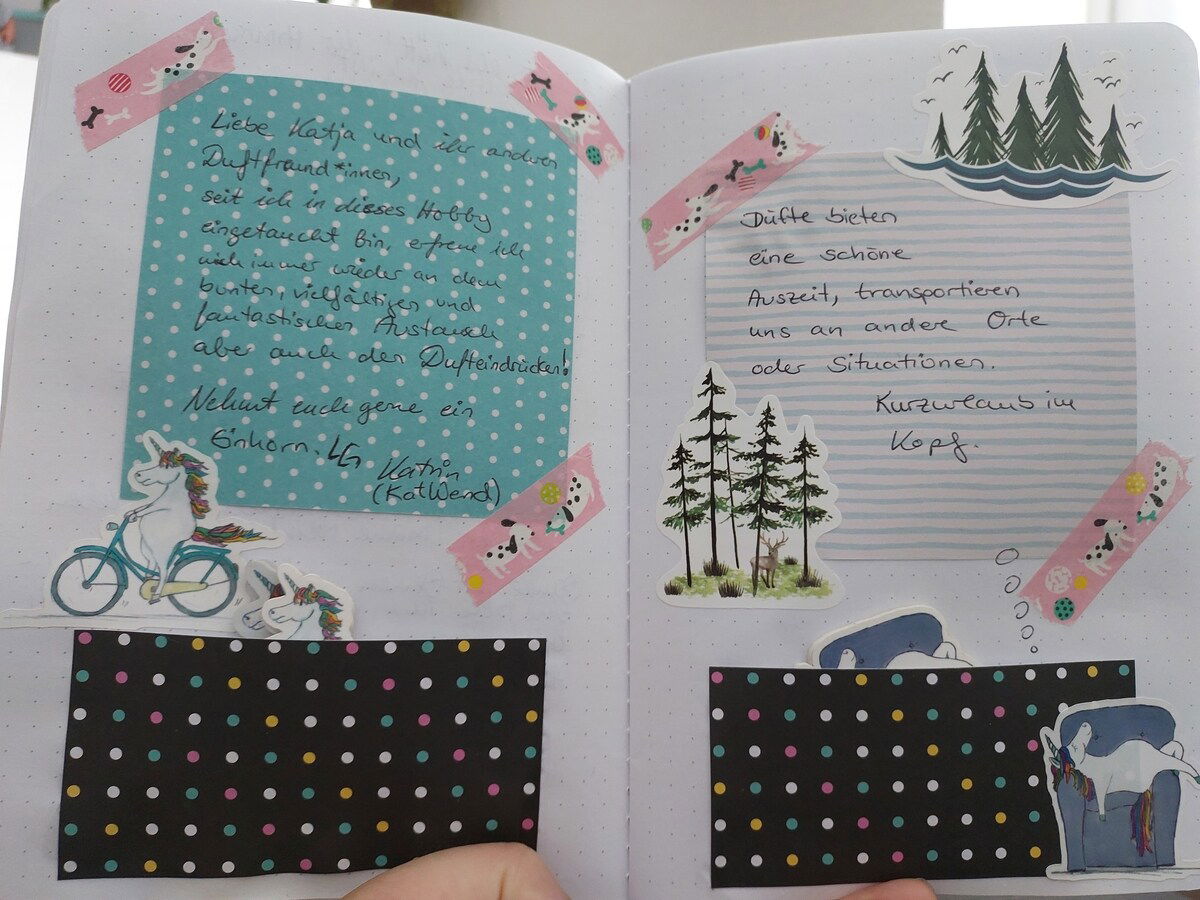 Liebe Katja und ihr anderen
Duftfreund*innen,
seit ich in dieses Hobby
eingetaucht bin, erfreue ich
mich immer wieder an dem
bunten, vielfältigen und
fantastischen Austausch
aber auch den Dufteindrücken!
Nehmt euch gerne ein
Einhorn. LG
Katrin
(KatWend)
Düfte bieten
eine schöne
Auszeit, transportieren
uns an andere Orte
oder Situationen.
Kurzurlaub im
Kopf.